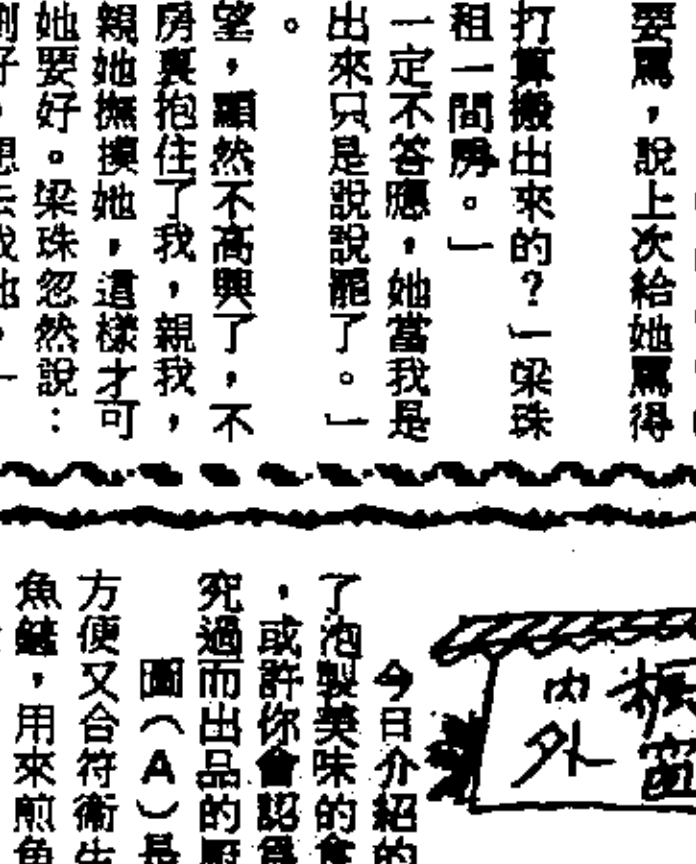 要罵，說上次給她罵得
打算搬出來的？」梁珠
租一間房。」
一定不答應，她當我是
出來只是說說罷了。」
。
望，顯然不高興了，不
房裏抱住了我，親我，
親她撫摸她，這樣才可
她要好。梁珠忽然說：
窗
內外
今日介紹的
了泡製美味的食
，或許你會認爲
究過而出品的廚
圖（A）是
方便又合符衞生
魚鏟，用來煎魚